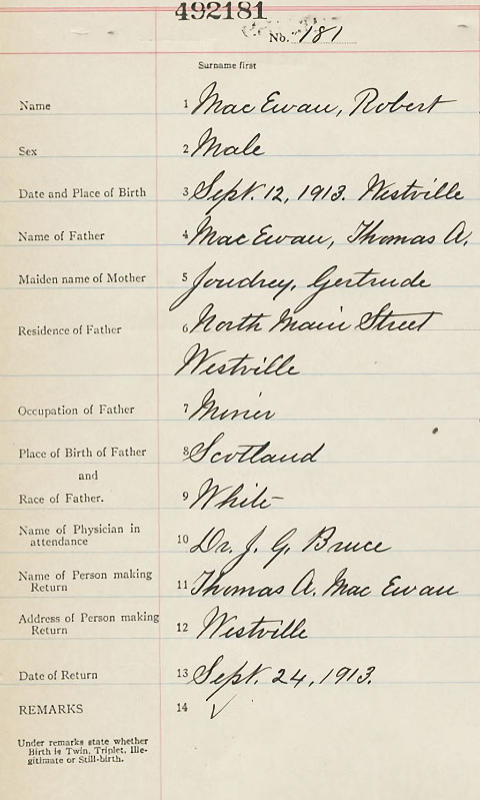 492181
No. 181
Surname first
Name 1 Mac Ewan, Robert
Sex 2 Male
Date and Place of Birth 3 Sept. 12, 1913. Westville
Name of Father 4 Mac Ewan, Thomas A.
Maiden name of Mother 5 Joudrey, Gertrude
Residence of Father 6 North Main Street
Westville
Occupation of Father 7 Miner
Place of Birth of Father 8 Scotland
and
Race of Father. 9 White
Name of Physician in
attendance 10 Dr. J. G. Bruce
Name of Person making
Return 11 Thomas A. Mac Ewan
Address of Person making
Return 12 Westville
Date of Return 13 Sept. 24, 1913.
REMARKS 14 ✓
Under remarks state whether
Birth is Twin, Triplet, Ille-
gitimate or Still-birth.